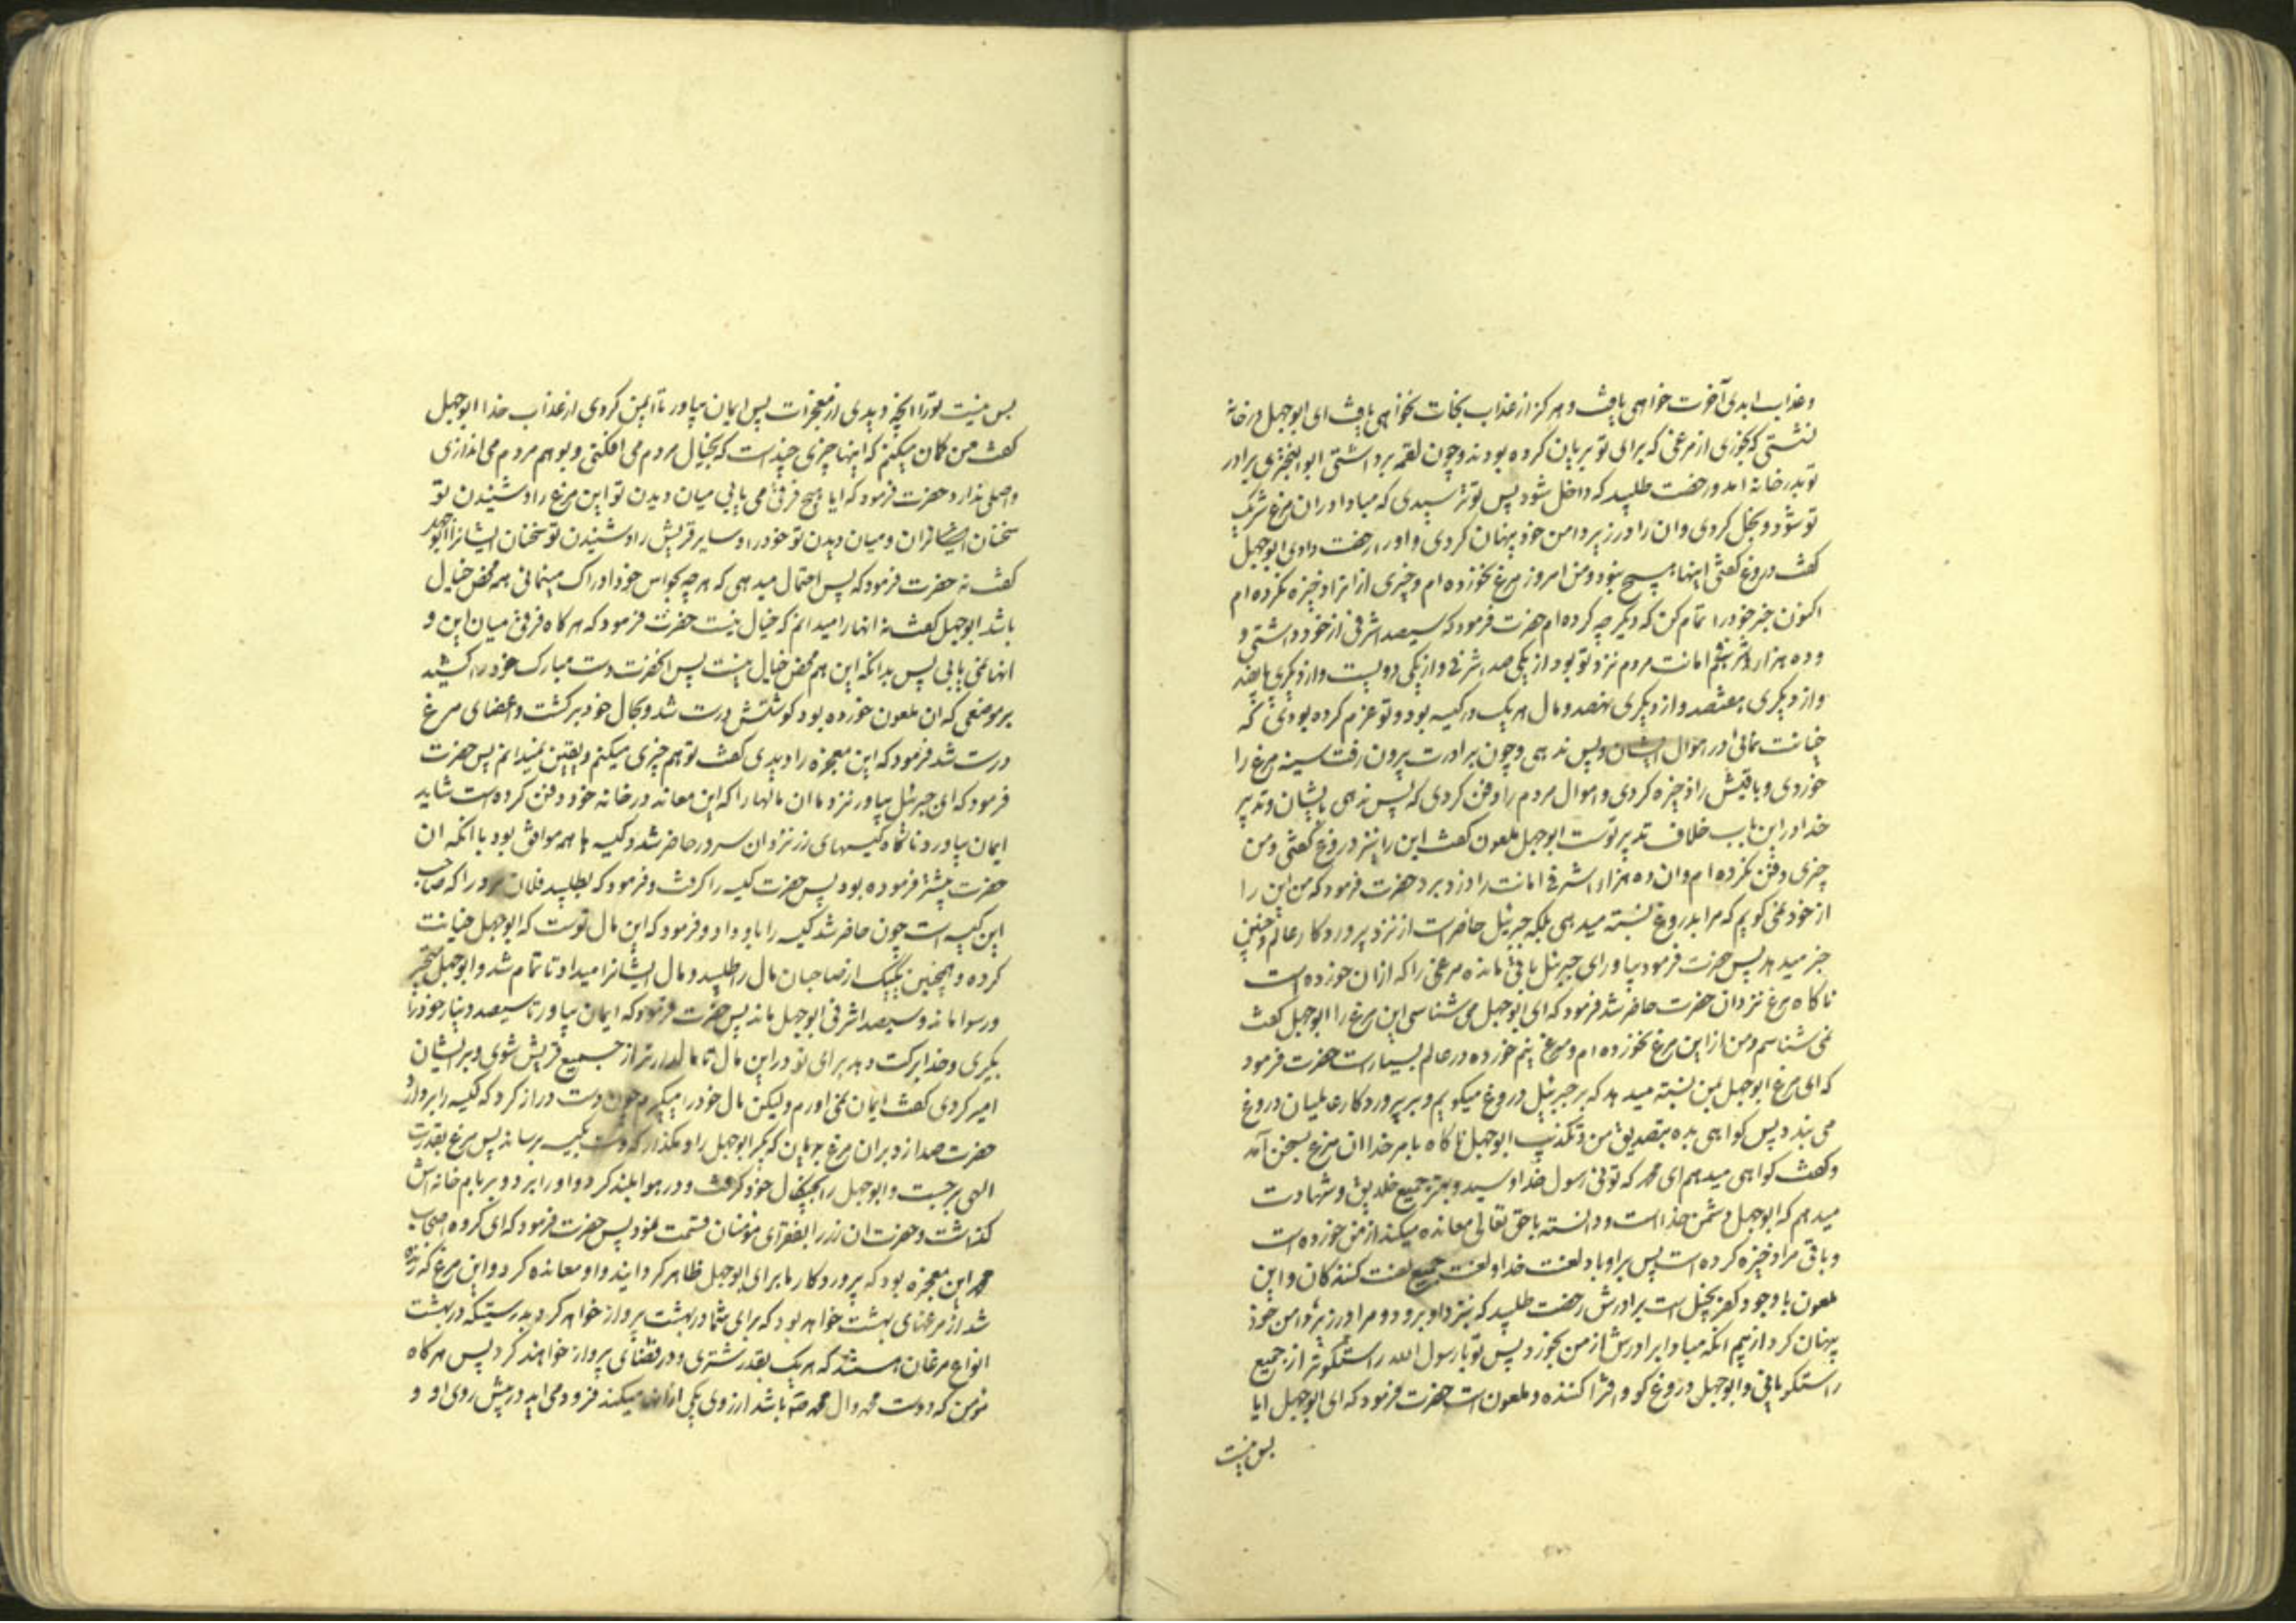 و عذاب ابدی آخرت خواهی یافت و هرکز از عذاب نجات نخواهی یافت ای ابوجهل در خانه
نشستی که بخوری از مرغی که برای تو بریان کرده بودند و چون لقمه برداشتی ابوالبختری برادر
تو بدر خانه امد و رخصت طلبید که داخل شود پس تو ترسیدی که مبادا در ان مرغ شریک
تو شود و بخل کردی و ان را در زیر دامن خود پنهان کردی و او را رخصت دادی ابوجهل
کفت دروغ کفتی اینها هیچ نبود و من امروز مرغ نخورده ام و چیزی از انرا ذخیره نکرده ام
اکنون خبر خود را تمام کن که دیکر چه کرده ام حضرت فرمود که سیصد اشرفی از خود داشتی و
و ده هزار اشرفی امانت مردم نزد تو بود از یکی صد اشرفی و از یکی دویست و از دیکری پانصد
و از دیکری هفتصد و از دیکری نهصد و مال هر یک در کیسه بود و تو عزم کرده بودی که
خیانت نمائی در اموال ایشان و پس ندهی و چون برادرت بیرون رفت سینه مرغ را
خوردی و باقیش را ذخیره کردی و اموال مردم را دفن کردی که پس ندهی بایشان و تدبیر
خدا در این باب خلاف تدبیر توست ابوجهل ملعون کفت این را نیز دروغ کفتی و من
چیزی دفن نکرده ام و ان ده هزار اشرفی امانت را دزد برد حضرت فرمود که من این را
از خود نمی کویم که مرا بدروغ نسبت میدهی بلکه جبرئیل حاضر است از نزد پرورد کار عالم و چنین
خبر میدهد پس حضرت فرمود بیاور ای جبرئیل باقی مانده مرغی را که از ان خورده است
ناکاه مرغ نزد ان حضرت حاضر شد فرمود که ای ابوجهل می شناسی این مرغ را ابوجهل کفت
نمی شناسم و من از این مرغ نخورده ام و مرغ نیم خورده در عالم بسیار است حضرت فرمود
که ای مرغ ابوجهل بمن نسبت میدهد که بر جبرئیل دروغ میکویم و بر پرورد کار عالمیان دروغ
می بندد پس کواهی بده بتصدیق من و تکذیب ابوجهل ناکاه بامر خدا ان مرغ بسخن آمد
و کفت کواهی میدهم ای محمد که توئی رسول خدا و سید و بهتر جمیع خلایق و شهادت
میدهم که ابوجهل دشمن خداست و دانسته با حق تعالی معانده میکند از من خورده است
و باقی مرا ذخیره کرده است پس بر او باد لعنت خدا و لعنت جمیع لعنت کنندکان و این
ملعون با وجود کفر بخیل است برادرش رخصت طلبید که بنزد او برود و مرا در زیر دامن خود
پنهان کرد از بیم انکه مبادا برادرش از من بخورد پس تو یا رسول الله راستکوتر از جمیع
راستکویانی و ابوجهل دروغ کو و افترا کننده و ملعونست حضرت فرمود که ای ابوجهل ایا
بس نیست
بس نیست تو را انچه دیدی از معجزات پس ایمان بیاور تا ایمن کردی از عذاب خدا ابوجهل
کفت من کمان میکنم که اینها چیزی چند است که بخیال مردم می افکنی و بوهم مردم می اندازی
و اصلی ندارد حضرت فرمود که ایا هیچ فرقی می یابی میان دیدن تو این مرغ را و شنیدن تو
سخنان ان و میان دیدن تو خود را و سایر قریش را و شنیدن تو سخنان ایشانرا ابوجهل
کفت نه حضرت فرمود که پس احتمال میدهی که هر چه بحواس خود ادراک مینمائی همه محض خیال
باشد ابوجهل کفت نه انها را میدانم که خیال نیست حضرت فرمود که هرکاه فرقی میان این و
انها نمی یابی پس بدانکه این هم محض خیال نیست پس انحضرت دست مبارک خود را کشید
بر موضعی که ان ملعون خورده بود کوشتش درست شد و بحال خود برکشت و اعضای مرغ
درست شد فرمود که این معجزه را دیدی کفت توهم چیزی میکنم و یقین نمیدانم پس حضرت
فرمود که ای جبرئیل بیاور نزد ما ان مالها را که این معاند در خانه خود دفن کرده است شاید
ایمان بیاورد ناکاه کیسهای زر نزد ان سرور حاضر شد و کیسه ها همه موافق بود با انکه ان
حضرت پیشتر فرموده بود پس حضرت کیسه را کرفت و فرمود که بطلبید فلان مرد را که صاحب
این کیسه است چون حاضر شد کیسه را باو داد و فرمود که این مال توست که ابوجهل خیانت
کرده و همچنین یکیک از صاحبان مال را طلبید و مال ایشانرا میداد تا تمام شد و ابوجهل متحیر
و رسوا ماند و سیصد اشرفی ابوجهل ماند پس حضرت فرمود که ایمان بیاور تا سیصد دینار خود را
بکیری و خدا برکت دهد برای تو در این مال تا مالدارتر از جمیع قریش شوی و بر ایشان
امیر کردی کفت ایمان نمی اورم و لیکن مال خود را میکیرم چون دست دراز کرد که کیسه را بردارد
حضرت صدا زد بر ان مرغ بریان که بکیر ابوجهل را و مکذار که دست بکیسه برساند پس مرغ بقدرت
الهی برجست و ابوجهل را بچنکال خود کرفت و در هوا بلند کرد و او را برد و بر بام خانه اش
کذاشت و حضرت ان زر را بفقرای مؤمنان قسمت نمود پس حضرت فرمود که ای کروه اصحاب
محمد این معجزه بود که پرورد کار ما برای ابوجهل ظاهر کردانید و او معانده کرد و این مرغ که زنده
شد از مرغهای بهشت خواهد بود که برای شما در بهشت پرواز خواهد کرد بدرستیکه در بهشت
انواع مرغان هستند که هر یک بقدر شتری و در فضای پرواز خواهند کرد پس هرکاه
مؤمن که دوست محمد و ال محمد ص باشد ارزوی یکی از انها میکند فرود می اید در پیش روی او و